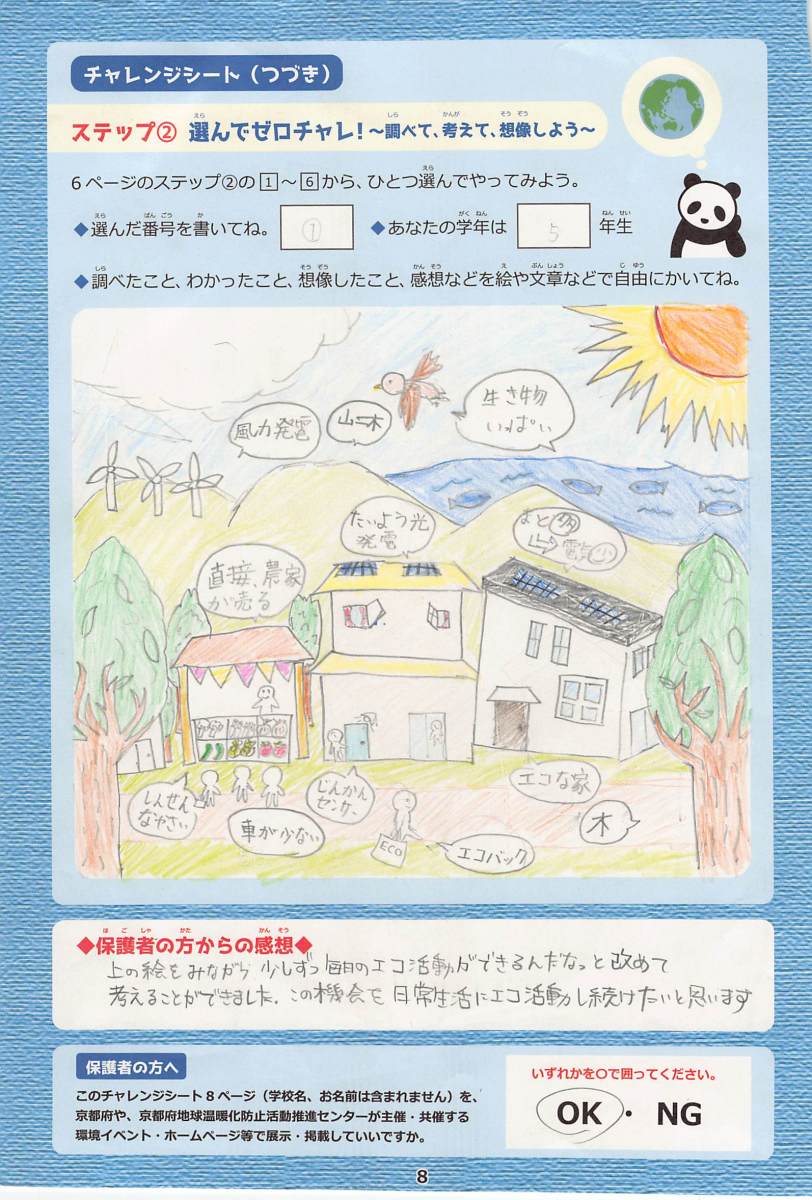 チャレンジシート（つづき）
ステップ② 選んでゼロチャレ！～調べて、考えて、想像しよう～
6ページのステップ②の1～6から、ひとつ選んでやってみよう。
◆選んだ番号を書いてね。 ① ◆あなたの学年は 5 年生
◆調べたこと、わかったこと、想像したこと、感想などを絵や文章などで自由にかいてね。
風力発電
山=木
生き物
いっぱい
たいよう光
発電
まど多
→電気少
直接、農家
が売る
しんせん
なやさい
車が少ない
じんかん
センサー
ECO
エコバック
エコな家
木
◆保護者の方からの感想◆
上の絵をみながら少しずつ毎日のエコ活動ができるんだなっと改めて
考えることができました。この機会を日常生活にエコ活動し続けたいと思います
保護者の方へ
このチャレンジシート8ページ（学校名、お名前は含まれません）を、
京都府や、京都府地球温暖化防止活動推進センターが主催・共催する
環境イベント・ホームページ等で展示・掲載していいですか。
いずれかを○で囲ってください。
OK・NG
8